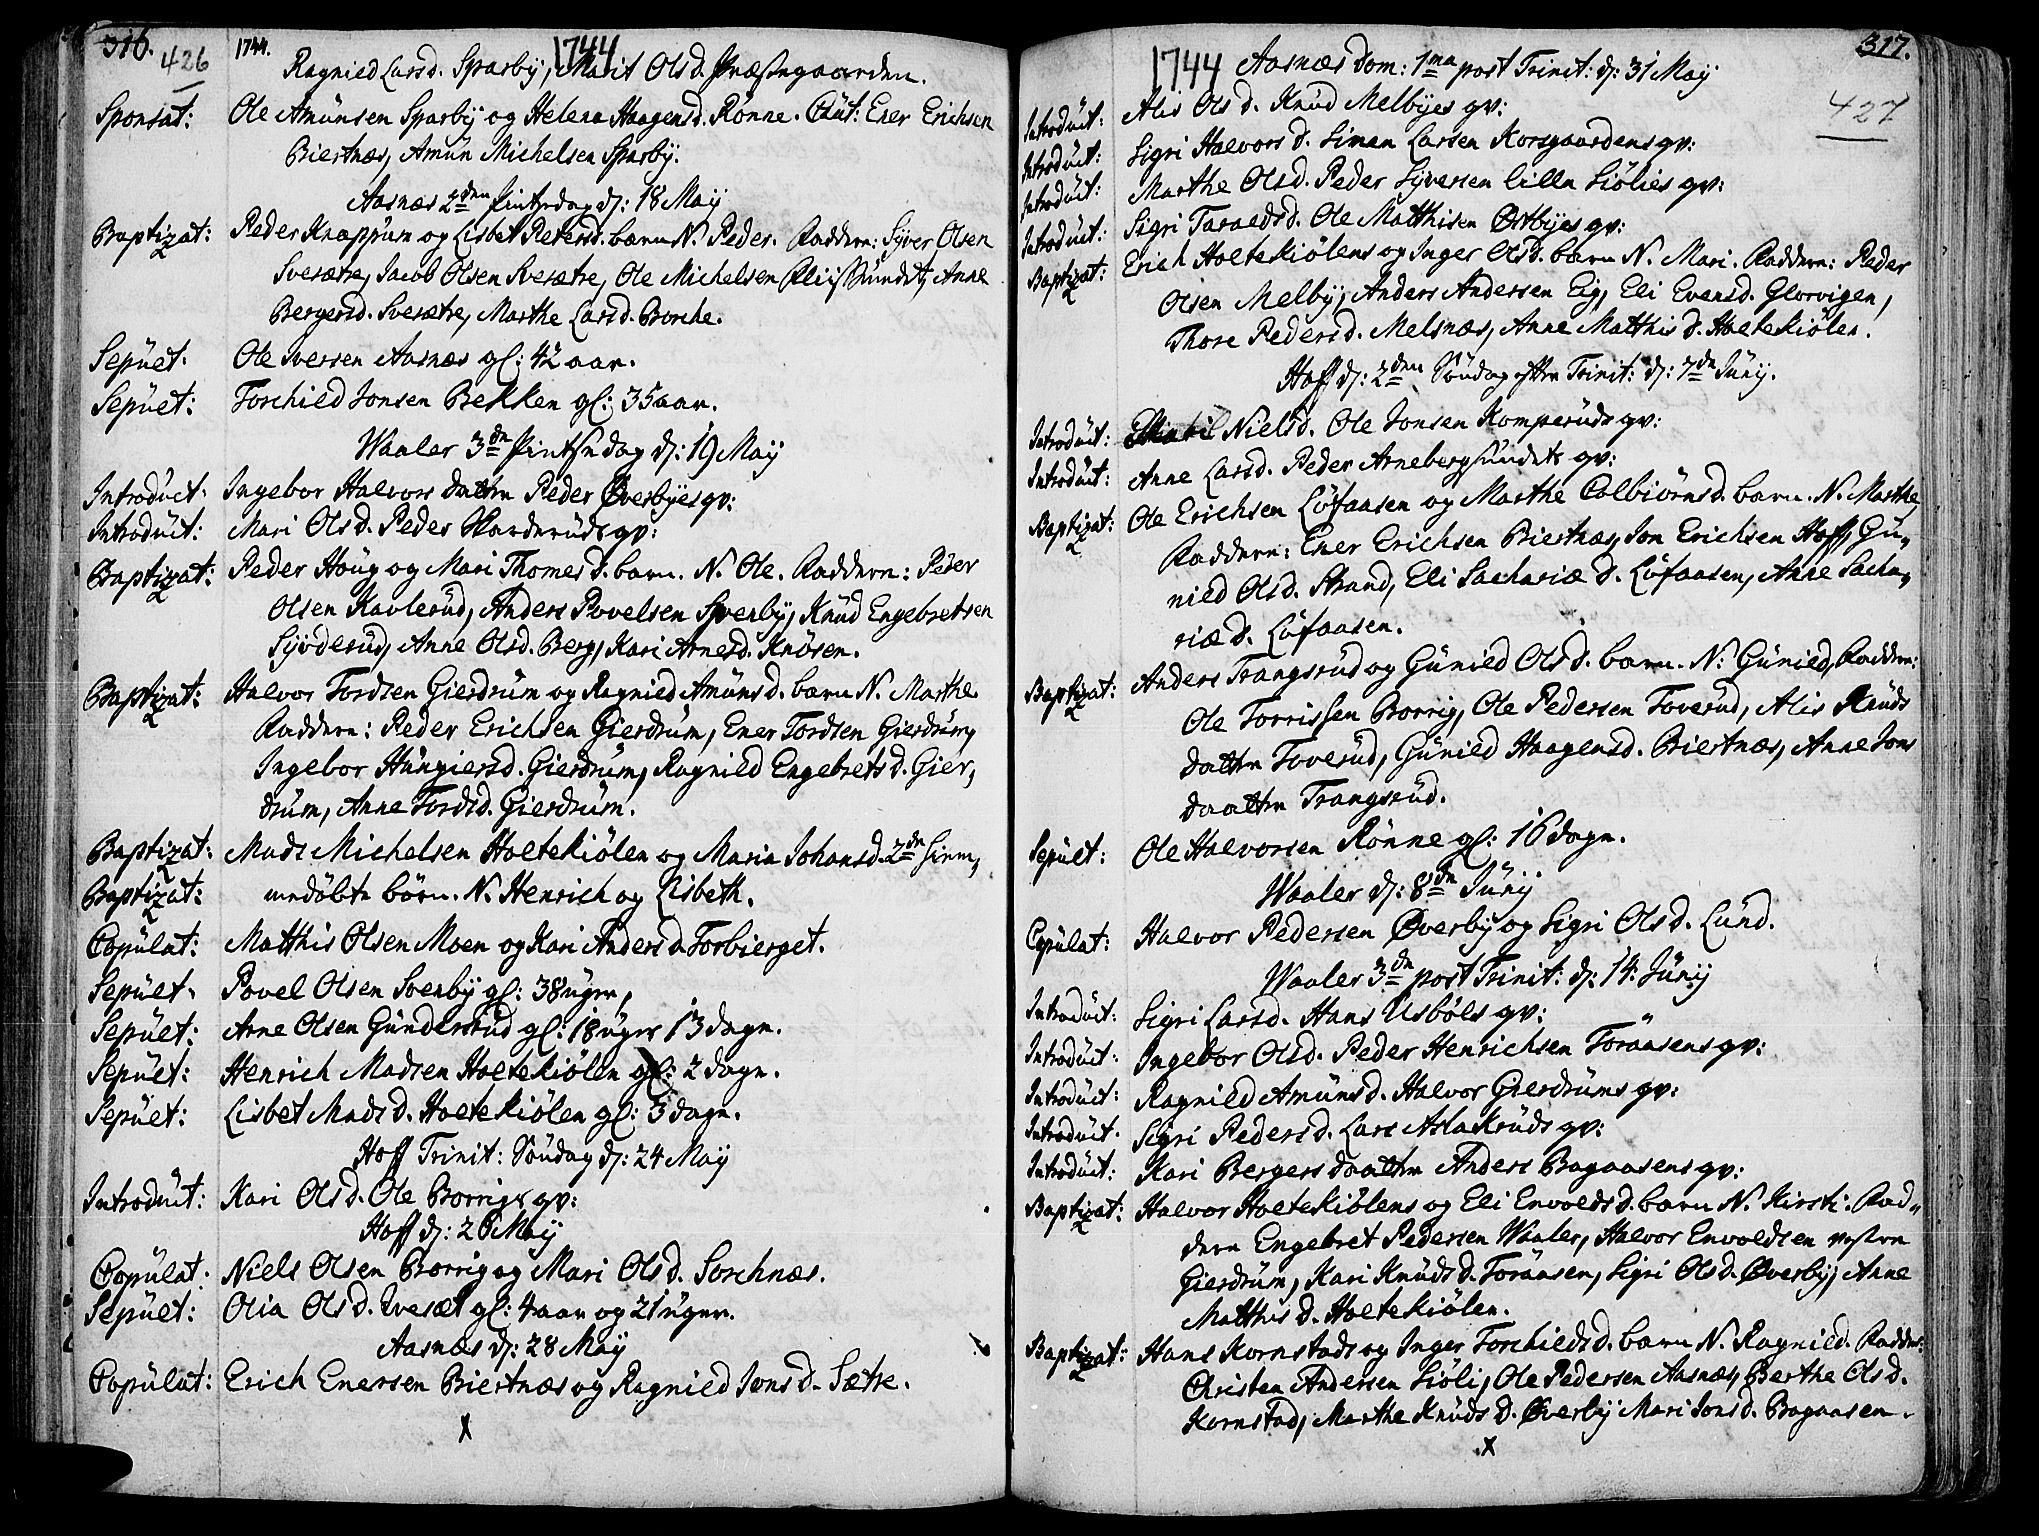 316.
426
1744.
1744
Ragnied Larsd. Sparby, Marit Olsd. Præstegaarden.
Sponsat: Ole Amünsen Sparbÿ og Helena Haagensd. Rønne. Caut: Ener Erichsen
Biertnæs, Amün Michelsen Sparbÿ.
Aasnæs 2den Pintzdag d: 18 Maÿ
Baptizat: Peder Knappum og Lisbet Petersd. barn N. Peder. Faddern: Sÿver Olsen
Sverætre, Jacob Olsen Sverætre, Ole Michelsen Flisssundet, Anne
Bergersd. Sverætre, Marthe Larsd. Borche.
Sepüet: Ole Iversen Aasnæs gl: 42 aar.
Sepüet: Torchild Jonsen Bekken gl: 35 aar.
Waaler 3de Pintsedag d: 19 Maÿ
Introdüct: Ingebor Halvors datter Peder Øverbÿes qv:
Introdüct: Mari Olsd. Peder Skarderuds qv:
Baptizat: Peder Houg og Mari Thomesd. barn. N. Ole. Faddern: Peder
Olsen Kavlerud, Anders Povelsen Svenbÿ, Knüd Engebretsen
Sÿvderüd, Anne Olsd. Berg, Kari Arnesd. Knôsen.
Baptizat: Halvor Tordsen Gierdrüm og Ragnild Amünsd. barn N. Marthe.
Faddern: Peder Erichsen Gierdrüm, Ener Tordsen Gierdrüm,
Ingebor Hüngiersd. Gierdrüm, Ragnild Engebretsd. Gier,
drüm, Anne Tordsd. Gierdrüm.
Baptizat: Mads Michelsen Holtekiölen og Maria Johansd. 2de hiem,
Baptizat: medöbte börn. N. Henrich og Lisbeth.
Copülat: Matthis Olsen Moen og Kari Andersd. Torbierget.
Sepüet: Povel Olsen Svenbÿ gl: 38 üger,
Sepüet: Arne Olsen Günderrüd gl: 18 üger 13 dage.
Sepüet: Henrich Madsen Holtekiölen gl: 2 dage.
Sepüet: Lisbet Madsd. Holtekiölen gl: 3 dage.
Hoff Trinit: Söndag d: 24 Maÿ
Introdüct: Kari Olsd. Ole Borrigs qv:
Hoff d: 26 Maÿ
Copülat: Niels Olsen Borrig og Mari Olsd. Sorchnæs.
Sepüet: Olia Olsd. gl: 4 aar og 21 üger.
Aasnæs d: 28 Maÿ
Copülat: Erich Enersen Biertnæs og Ragnild Jonsd. Sætre.
x
317.
427
1744 Aasnæs Dom: 1ma post Trinit: d: 31 Maÿ
Introdüct: Alis Olsd. Knüd Melbÿes qv:
Introdüct: Sigri Halvorsd. Simen Larsen Korsgaardens qv:
Introdüct: Marthe Olsd. Peder Sÿversen lille Siölies qv:
Introdüct: Sigri Taraldsd. Ole Matthisen Østbÿes qv:
Baptizat: Erich Holtekiölens og Inger Olsd. barn N. Mari. Faddern: Peder
Olsen Melbÿ, Anders Andersen Eig, Eli Evensd. Glorvigen,
Thore Pedersd. Melsnæs, Anne Matthisd. Holtekiölen.
Hoff d: 2den Söndag efter Trinit: d: 7de Jünÿ.
Introdüct: Nielsd. Ole Jonsen Komperuds qv:
Introdüct: Anne Larsd. Peder Arnebergsündets qv:
Baptizat: Ole Erichsen Löfaasen og Marthe Colbiörnsd. barn. N. Marthe,
Faddern: Ener Erichsen Biertnæs, Jon Erichsen Hoff, Gü,,
nild Olsd. Strand, Eli Sachariæ d. Löfaasen, Anne Sacha,,
riæ d. Löfaasen.
Baptizat: Anders Trangsrüd og Günild Olsd. barn. N: Günild, Faddern:
Ole Torrissen Borrig, Ole Pedersen Toverüd, Alis Knüds
datter Toverüd, Günild Haagensd. Biertnæs, Anne Jons
daatter Trangsrüd.
Sepüet: Ole Halvorsen Rønne gl: 16 dage.
Waaler d: 8de Jünÿ
Copülat: Halvor Pedersen Øverbÿ og Sigri Olsd. Lünd.
Waaler 3de post Trinit: d: 14 Jünÿ
Introdüct: Sigri Larsd. Hans Usböls qv:
Introdüct: Ingebor Olsd. Peder Henrichsen Töraasens qv:
Introdüct: Ragnild Amünsd. Halvor Gierdrüms qv:
Introdüct: Sigri Pedersd. Lars Aslakrüds qv:
Introdüct: Kari Bergers daatter Anders Bagaasens qv:
Baptizat: Halvor Holtekiölens og Eli Envoldsd. barn N. Kirsti. Fad,,
dern Engebret Pedersen Waaler, Halvor Envoldsen vestre
Gierdrüm, Kari Knüdsd. Töraasen, Sigri Olsd. Øverbÿ, Anne
Matthisd. Holtekiölen.
Baptizat: Hans Kornstads og Inger Torchieldsd. barn N. Ragnild. Fadder:
Christen Andersen Siöli, Ole Pedersen Aasnæs, Berthe Olsd.
Kornstad, Marthe Knüdsd. Øverbÿ Mari Jonsd. Bagaasen.
x